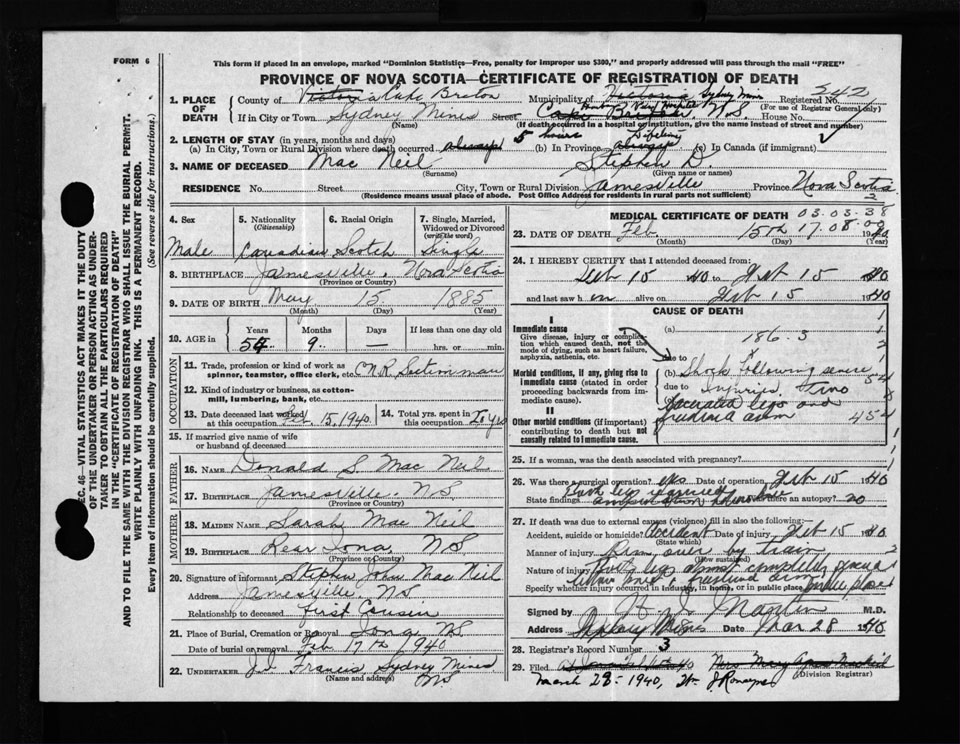 FORM 6
This form if placed in an envelope, marked "Dominion Statistics—Free, penalty for improper use $300," and properly addressed will pass through the mail "FREE"
PROVINCE OF NOVA SCOTIA—CERTIFICATE OF REGISTRATION OF DEATH
SEC. 46—VITAL STATISTICS ACT MAKES IT THE DUTY
OF THE UNDERTAKER OR PERSON ACTING AS UNDER-
TAKER TO OBTAIN ALL THE PARTICULARS REQUIRED
IN THE "CERTIFICATE OF REGISTRATION OF DEATH"
AND TO FILE THE SAME WITH THE DIVISION REGISTRAR WHO SHALL ISSUE THE BURIAL PERMIT.
WRITE PLAINLY WITH UNFADING INK. THIS IS A PERMANENT RECORD.
Every item of information should be carefully supplied. (See reverse side for instructions.)
1. PLACE OF DEATH County of Victoria Cape Breton Municipality of Victoria Sydney Mines Registered No. 542
(For use of Registrar General only)
If in City or Town Sydney Mines Street Cape Breton N.S. House No.
(Name) (If death occurred in a hospital or institution, give the name instead of street and number)
2. LENGTH OF STAY (in years, months and days) 5 hours Lifetime
(a) In City, Town or Rural Division where death occurred always (b) In Province always (c) In Canada (if immigrant)
3. NAME OF DECEASED Mac Neil Stephen D.
(Surname) (Given name or names)
RESIDENCE No. Street City, Town or Rural Division Jamesville Province Nova Scotia
(Residence means usual place of abode. Post Office Address for residents in rural parts not sufficient)
4. Sex Male
5. Nationality (Citizenship) Canadian
6. Racial Origin Scotch
7. Single, Married, Widowed or Divorced (write the word) Single
8. BIRTHPLACE Jamesville, Nova Scotia
(Province or Country)
9. DATE OF BIRTH May 15 1885
(Month) (Day) (Year)
10. AGE in Years 54 Months 9 Days — If less than one day old hrs. or min.
OCCUPATION
11. Trade, profession or kind of work as spinner, teamster, office clerk, etc. C.N.R. Sectionman
12. Kind of industry or business, as cotton-mill, lumbering, bank, etc.
13. Date deceased last worked at this occupation Feb. 15, 1940
14. Total yrs. spent in this occupation 20 yrs
15. If married give name of wife or husband of deceased
FATHER
16. NAME Donald S. Mac Neil
17. BIRTHPLACE Jamesville, N.S.
(Province or Country)
MOTHER
18. MAIDEN NAME Sarah Mac Neil
19. BIRTHPLACE Rear Iona, NS
(Province or Country)
20. Signature of informant Stephen John Mac Neil
Address Jamesville, NS
Relationship to deceased First Cousin
21. Place of Burial, Cremation or Removal Iona NS
Date of burial or removal Feb 17th 1940
22. UNDERTAKER J.J. Francis, Sydney Mines NS
(Name and address)
MEDICAL CERTIFICATE OF DEATH 03.03.38
23. DATE OF DEATH Feb. 15th 17.08.00 1940
(Month) (Day) (Year)
24. I HEREBY CERTIFY that I attended deceased from:
Feb 15 40 to Feb 15 1940
and last saw him alive on Feb 15 1940
CAUSE OF DEATH
I
Immediate cause
Give disease, injury or complication which caused death, not the mode of dying, such as heart failure, asphyxia, asthenia, etc.
(a) 186.3
due to
Morbid conditions, if any, giving rise to immediate cause (stated in order proceeding backwards from immediate cause).
(b) Shock following severe
due to injuries, two
(c) lacerated legs and
fractured arm
II
Other morbid conditions (if important) contributing to death but not causally related to immediate cause.
454
25. If a woman, was the death associated with pregnancy?
26. Was there a surgical operation? yes Date of operation Feb 15 1940
State findings Both legs Was there an autopsy? no
amputation
27. If death was due to external causes (violence) fill in also the following:—
Accident, suicide or homicide? Accident Date of injury Feb 15 1940
(State which)
Manner of injury Run over by train
(How sustained)
Nature of injury Both legs almost completely severed
below knee & fractured arm
Specify whether injury occurred in industry, in home, or in public place public place
Signed by M.D.
Address Sydney Mines Date Mar 28 1940
28. Registrar's Record Number 3
29. Filed Mrs Mary
March 28-1940,
(Division Registrar)